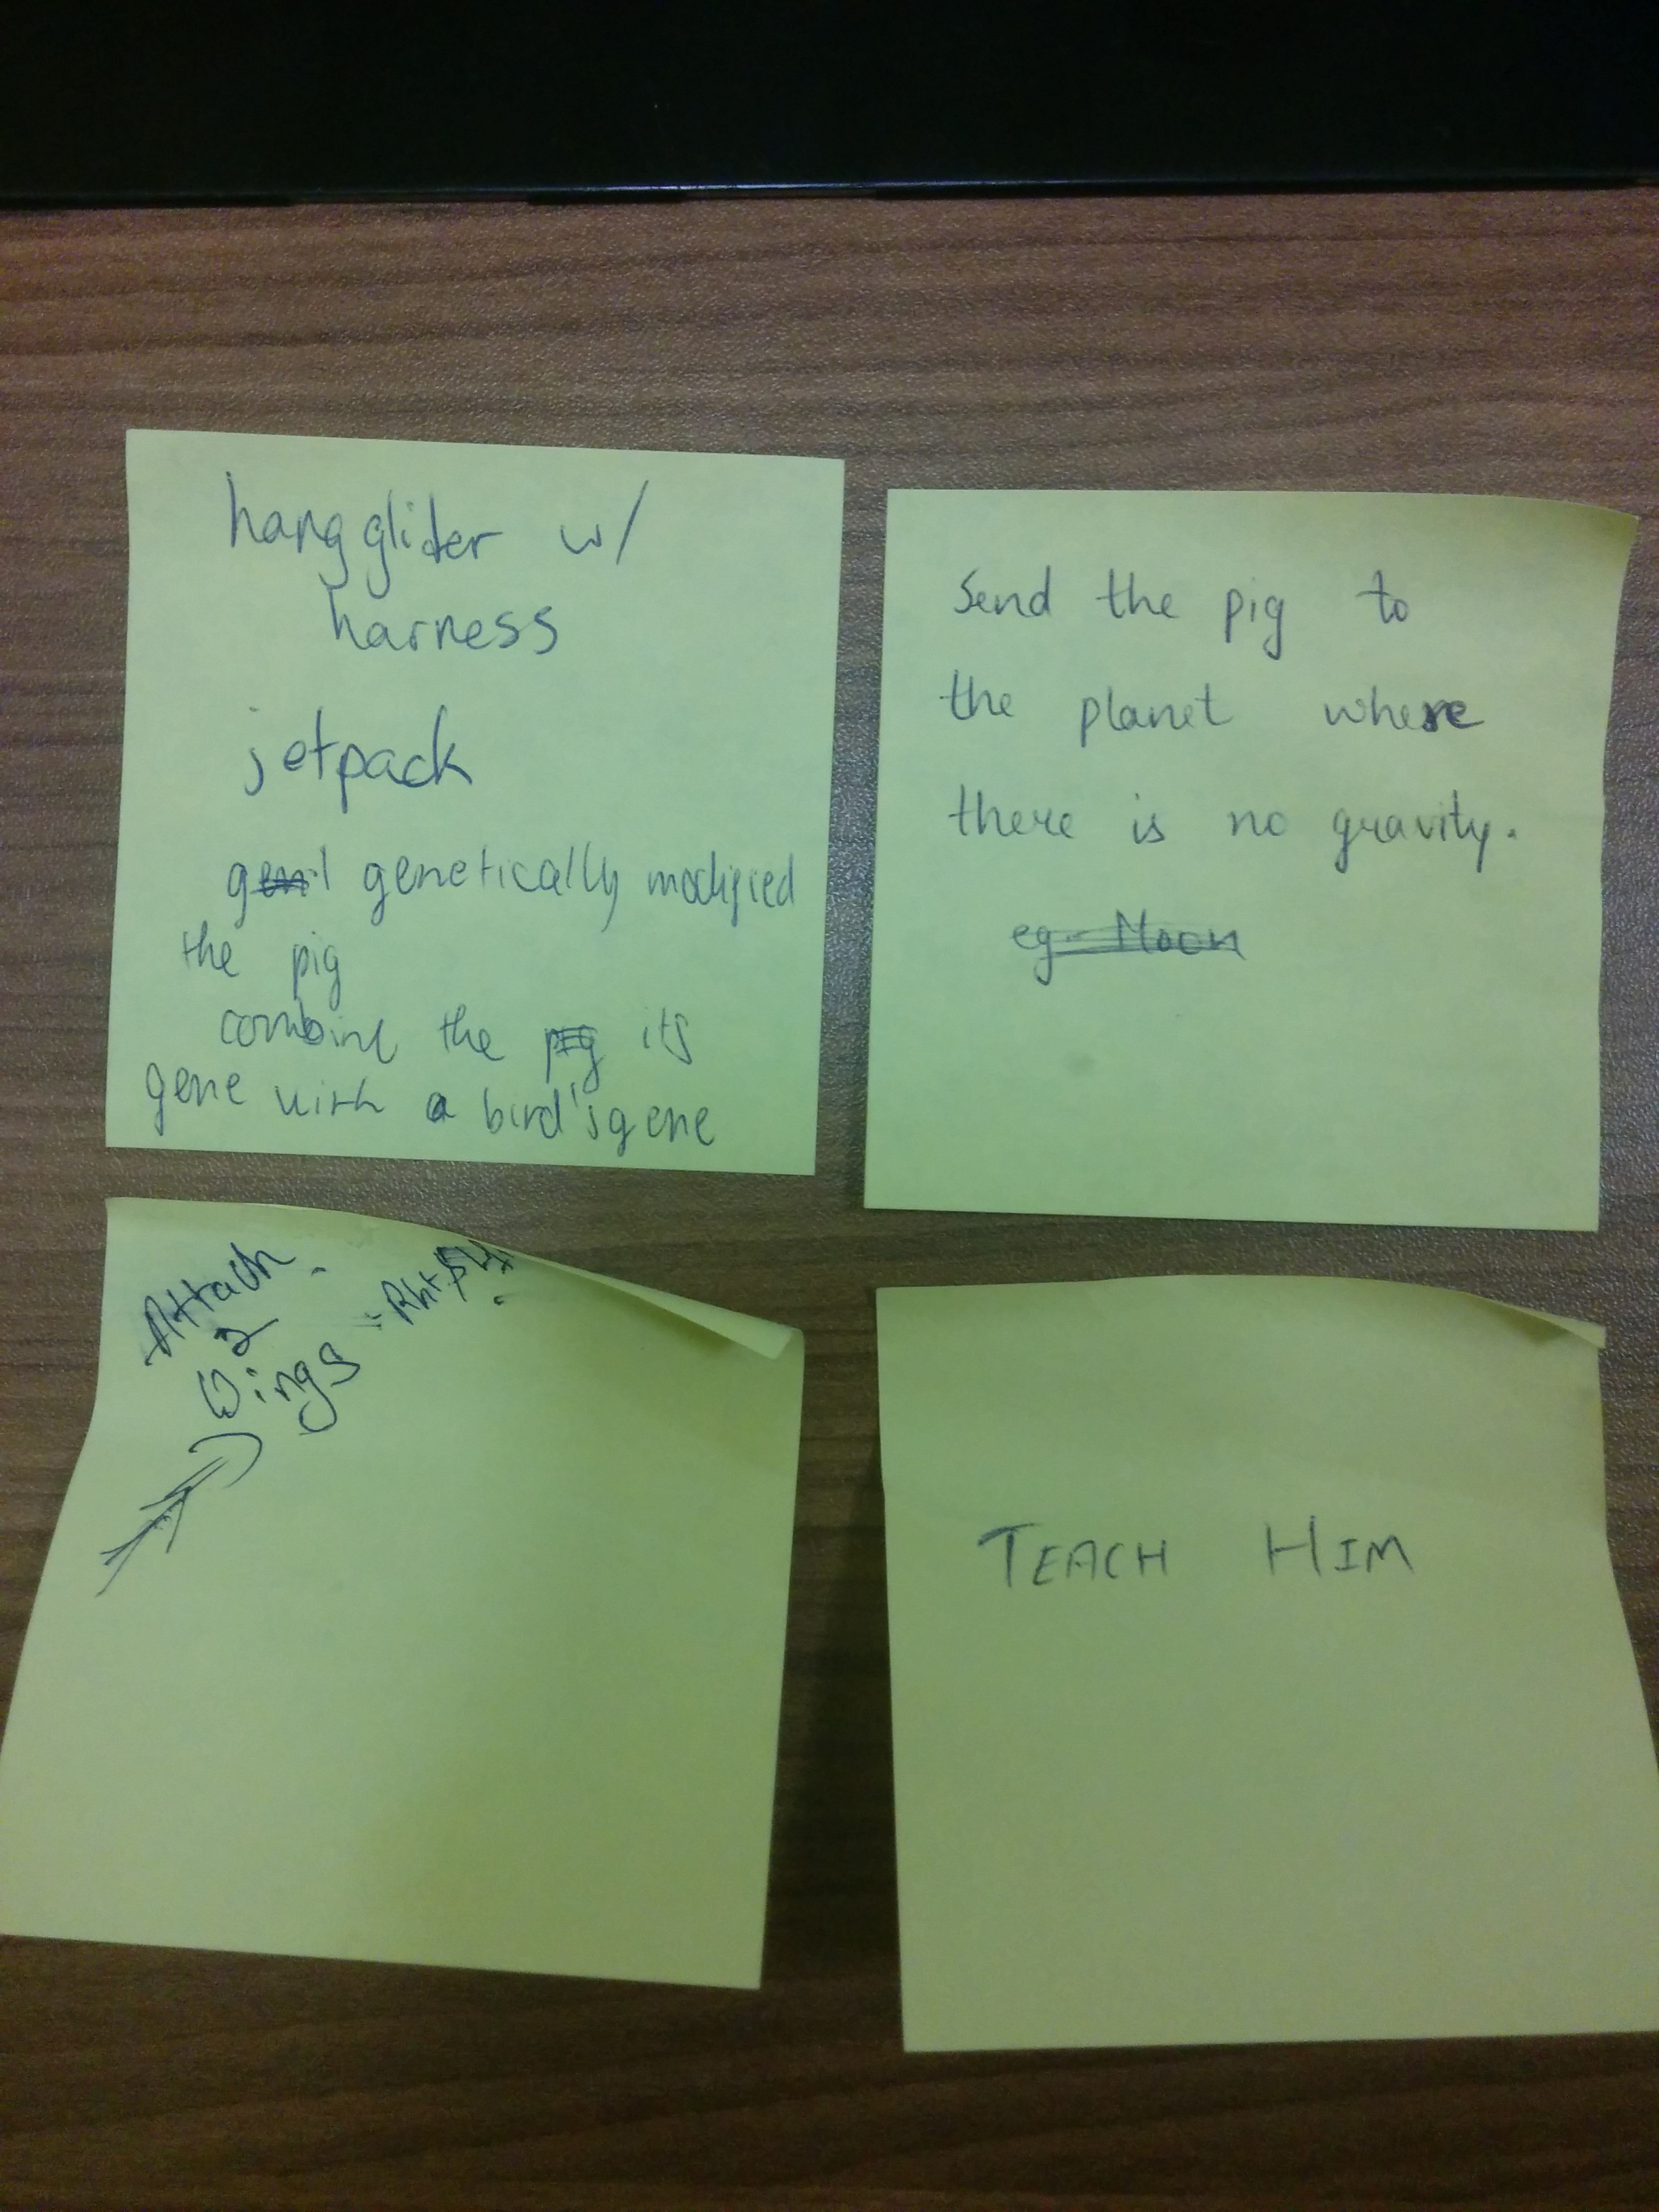 hang glider w/
harness
jetpack
genetically modified
the pig
combine the its
gene with a bird's gene
Send the pig to
the planet where
there is no gravity.
eg. Moon
Attach
2
Wings
TEACH HIM